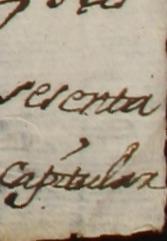 sesenta
Capitular